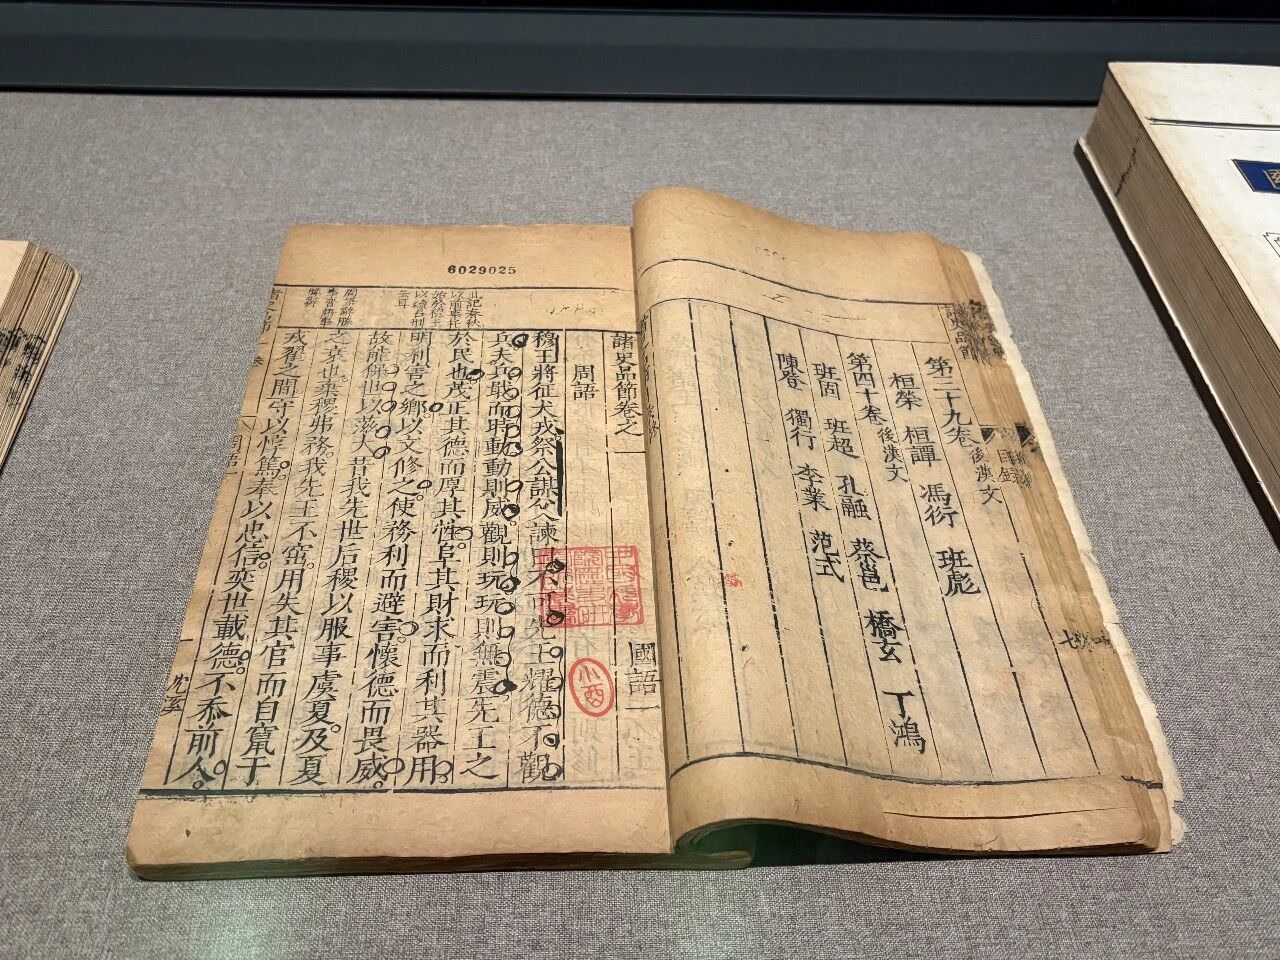 6029025
諸史品節
目錄
第三十九卷 後漢文
桓榮 桓譚 馮衍 班彪
第四十卷 後漢文
班固 班超 孔融 蔡邕 橋玄 丁鴻
陳登 獨行 李業 范式
諸史品節卷之一 國語一
周語
穆王將征犬戎祭公謀父諫曰不可先王耀德不觀
兵夫兵戢而時動動則威觀則玩玩則無震先王之
於民也茂正其德而厚其性阜其財求而利其器用
明利害之鄉以文修之使務利而避害懷德而畏威
故能保世以滋大昔我先世后稷以服事虞夏及夏
之衰也棄稷弗務我先王不窋用失其官而自竄于
戎翟之間守以惇篤奉以忠信奕世載德不忝前人
周語